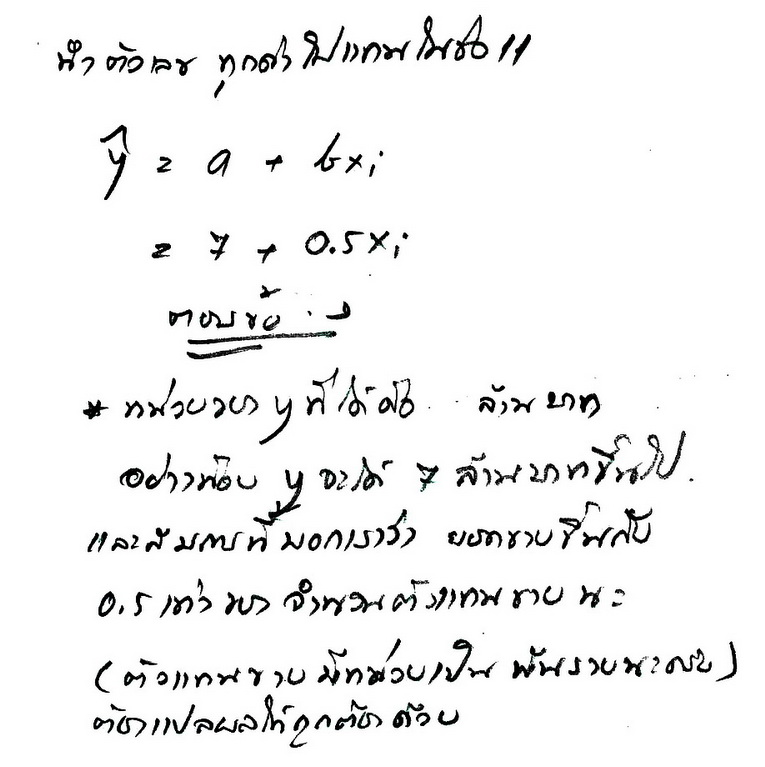 นำตัวเลข ทุกค่าไปแทนในข้อ 11
ŷ = a + bxi
= 7 + 0.5xi
ตอบข้อ
* หน่วยของ y ที่ได้คือ ล้านบาท
อย่างน้อย y จะได้ 7 ล้านบาทขึ้นไป.
และสมการที่บอกเราว่า ยอดขายขึ้นกับ
0.5 เท่าของ จำนวนตัวแทนขาย นะ
(ตัวแทนขาย มีหน่วยเป็น พันรายนะครับ)
ต้องแปลผลให้ถูกต้องด้วย